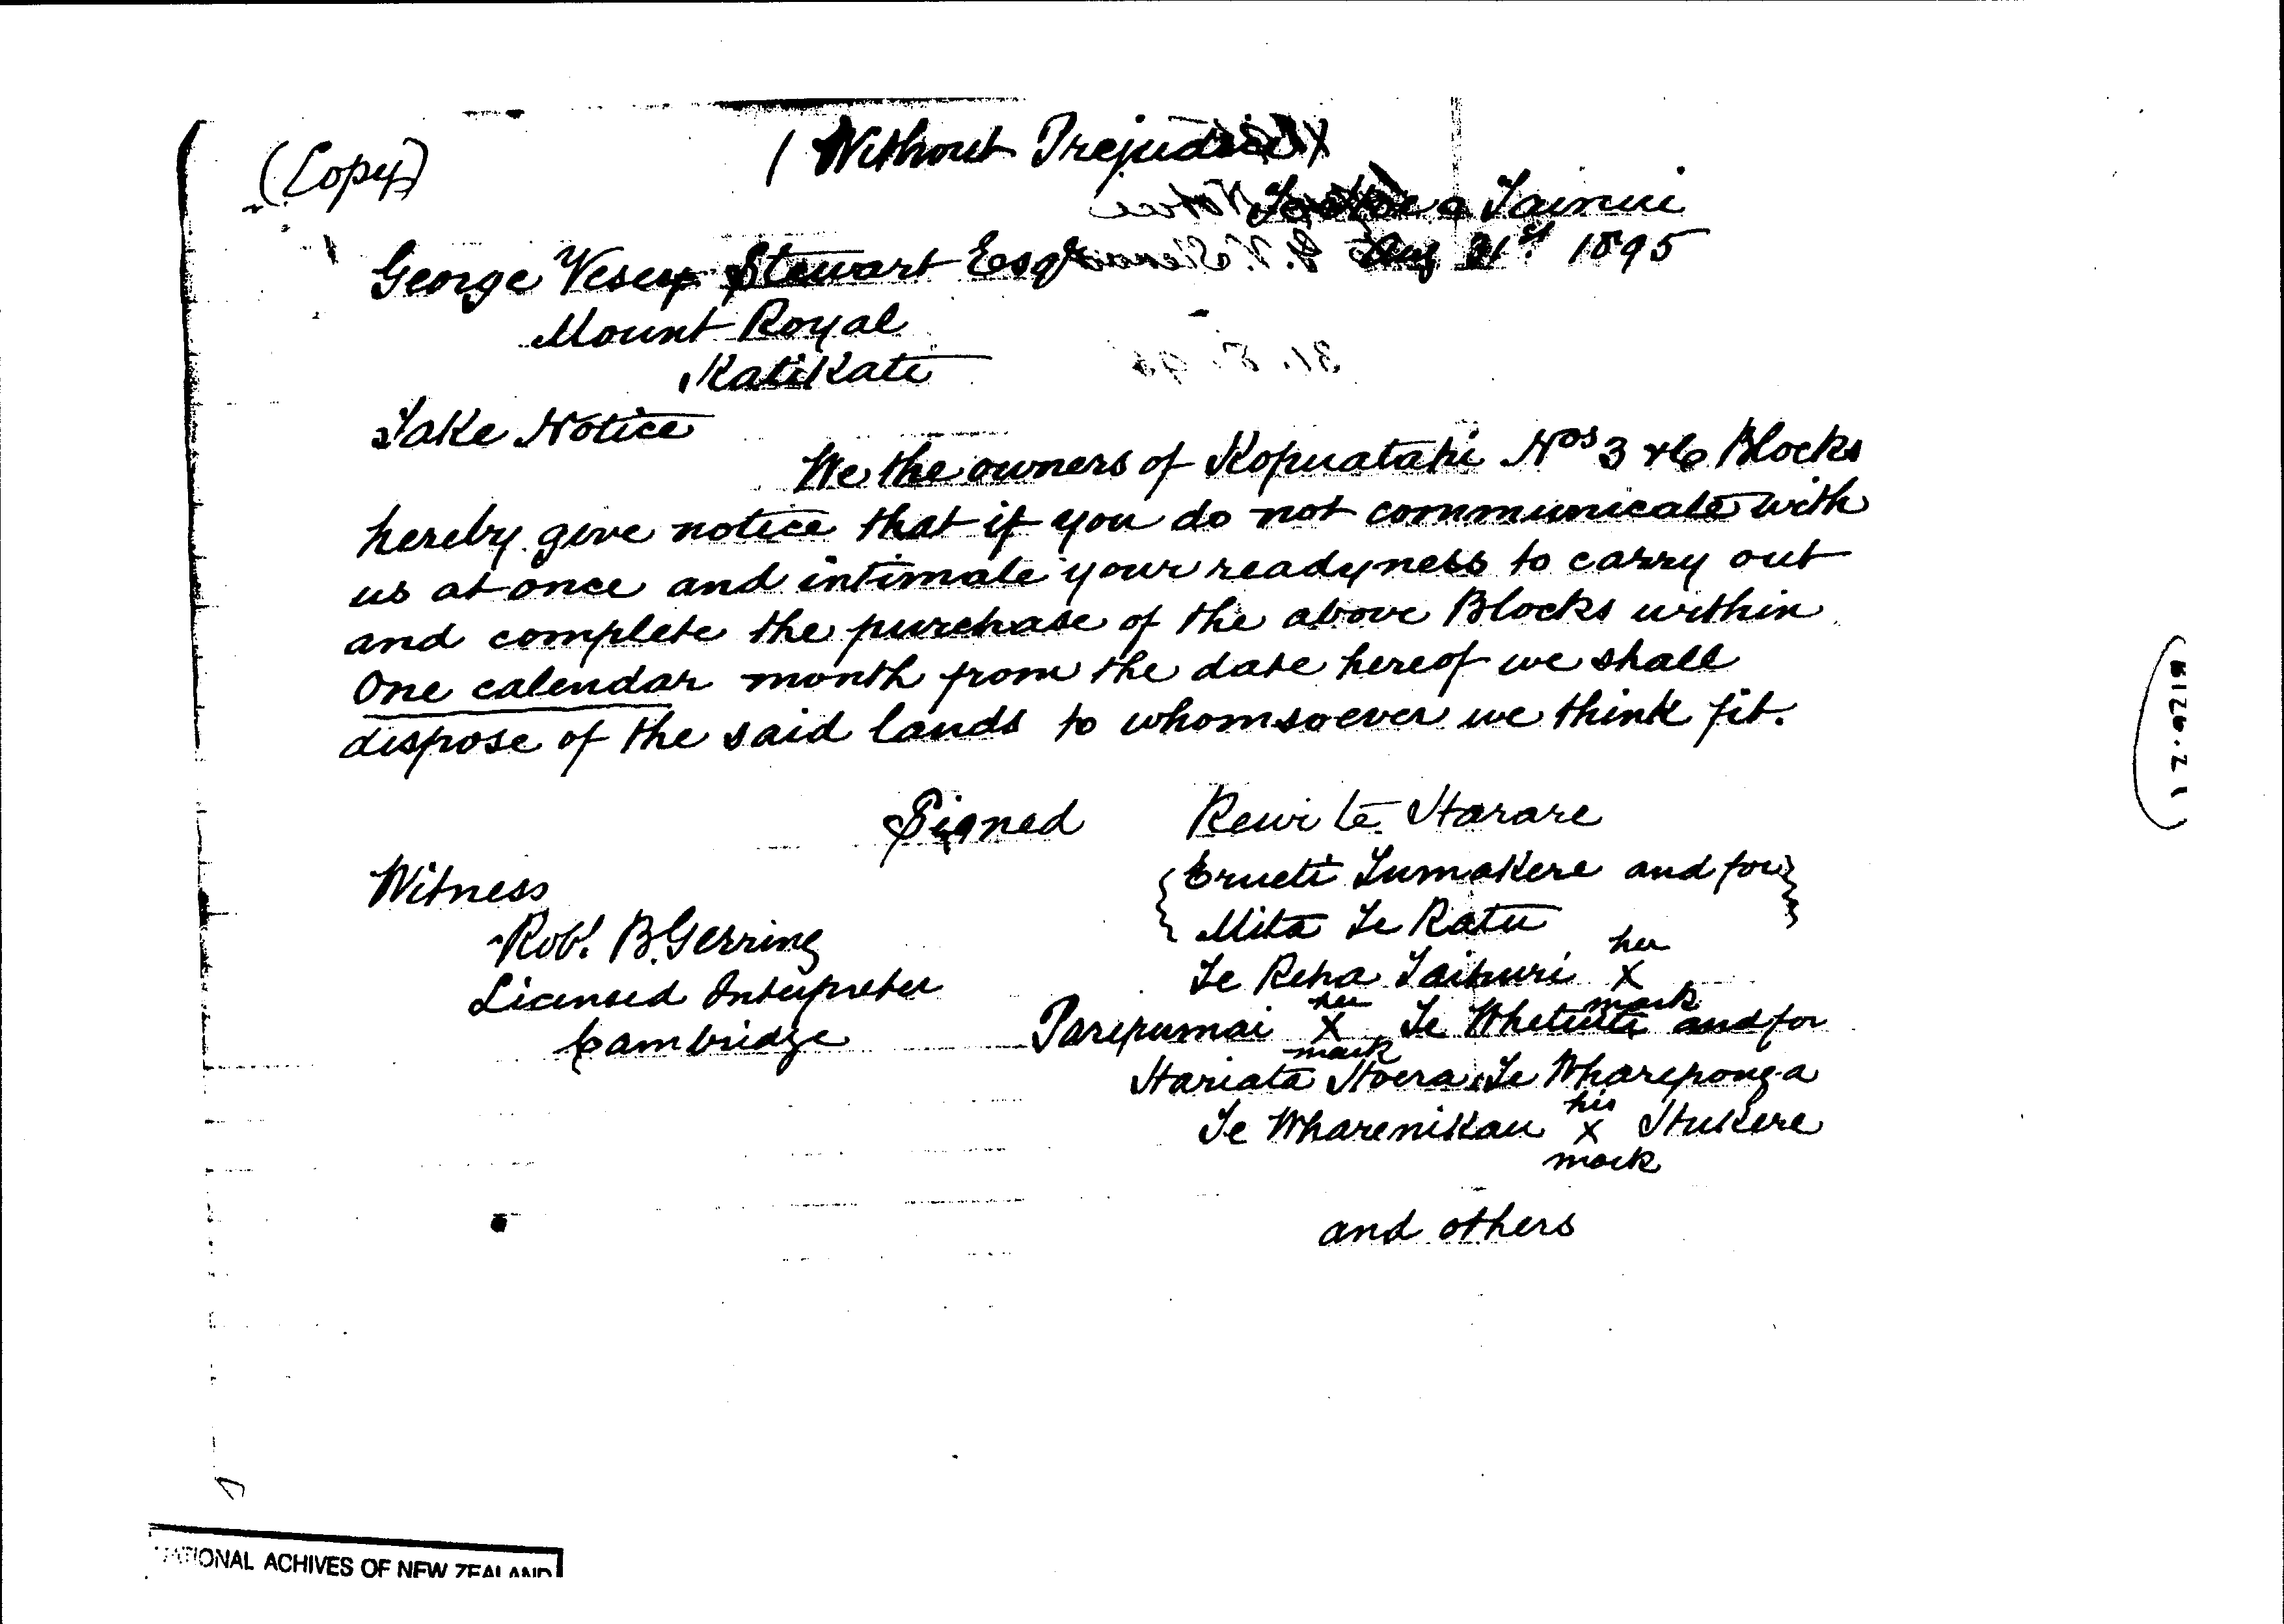 (Copy)
(Without Prejudice)
Tainui
Aug 31st 1895
George Vesey Stewart Esqr
Mount Royal
Katikati
Take Notice
We the owners of Kopuatahi Nos 3 & 6 Blocks
hereby give notice that if you do not communicate with
us at once and intimate your readyness to carry out
and complete the purchase of the above Blocks within
One calendar month from the date hereof we shall
dispose of the said lands to whomsoever we think fit.
Signed Rewi te Harare
Erueti Tumakere and for
Mita Te Ratu
Te Reha Taihuri her x mark
Parepumai her x mark Te and for
Hariata Hoera Te Whareponga
Te Wharenikau his x mark Hukere
and others
Witness
Robt. B. Gerring
Licensed Interpreter
Cambridge
NATIONAL ACHIVES OF NEW ZEALAND